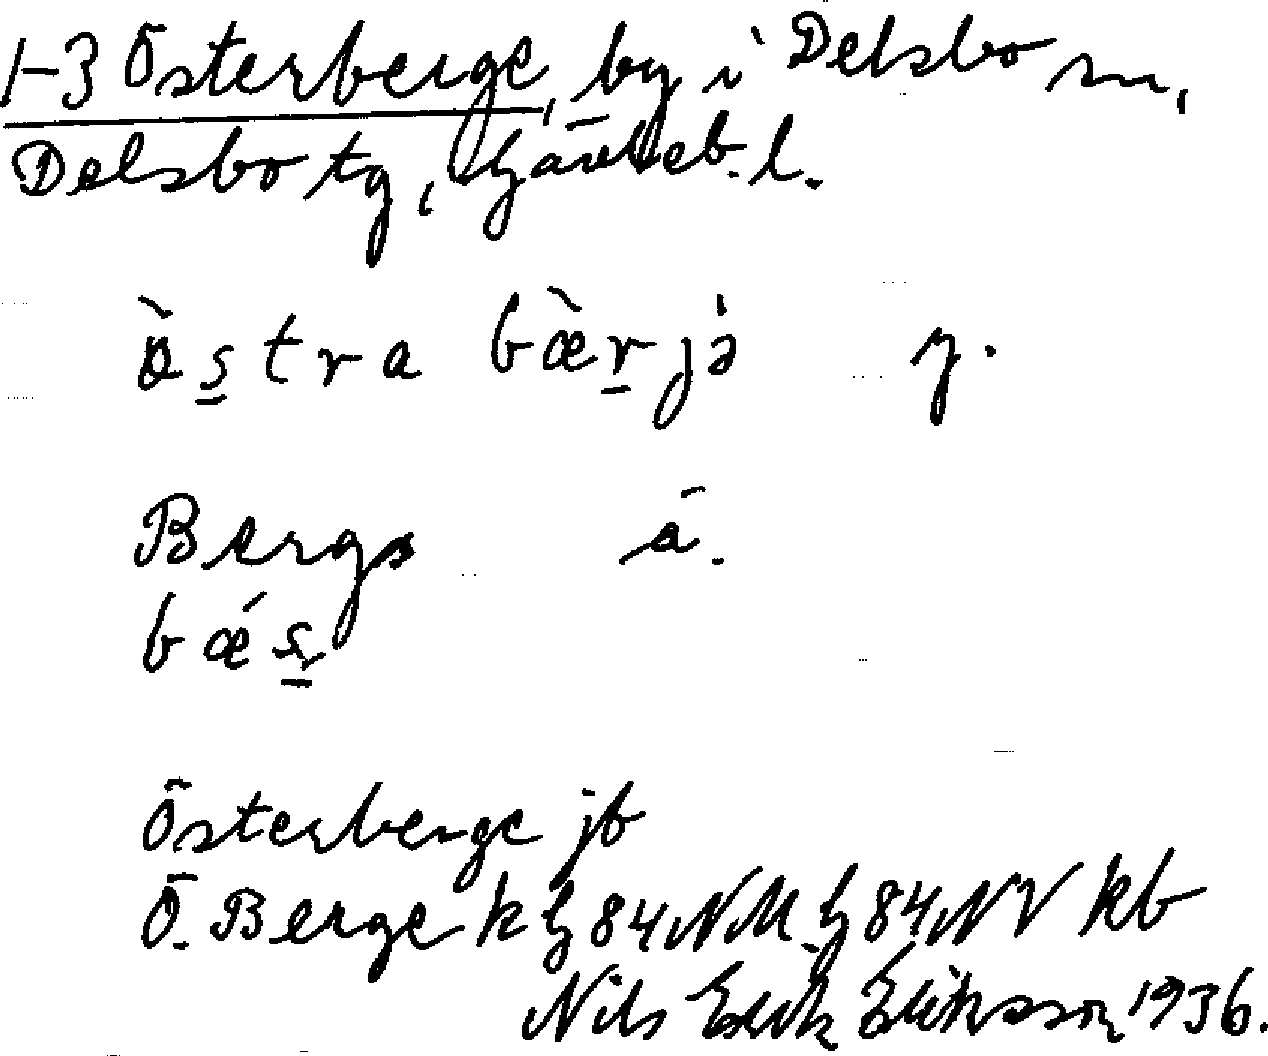 1-3 Österberge, by i Delsbo sn,
Delsbo tg, Gävleb. l.
ö̀s̱tra bæ̀ṟjə y.
Bergs ä.
bǽs̱
Österberge jb
Ö. Berge k h 84 NM, h 84 NV kb
Nils Erik Eriksson 1936.